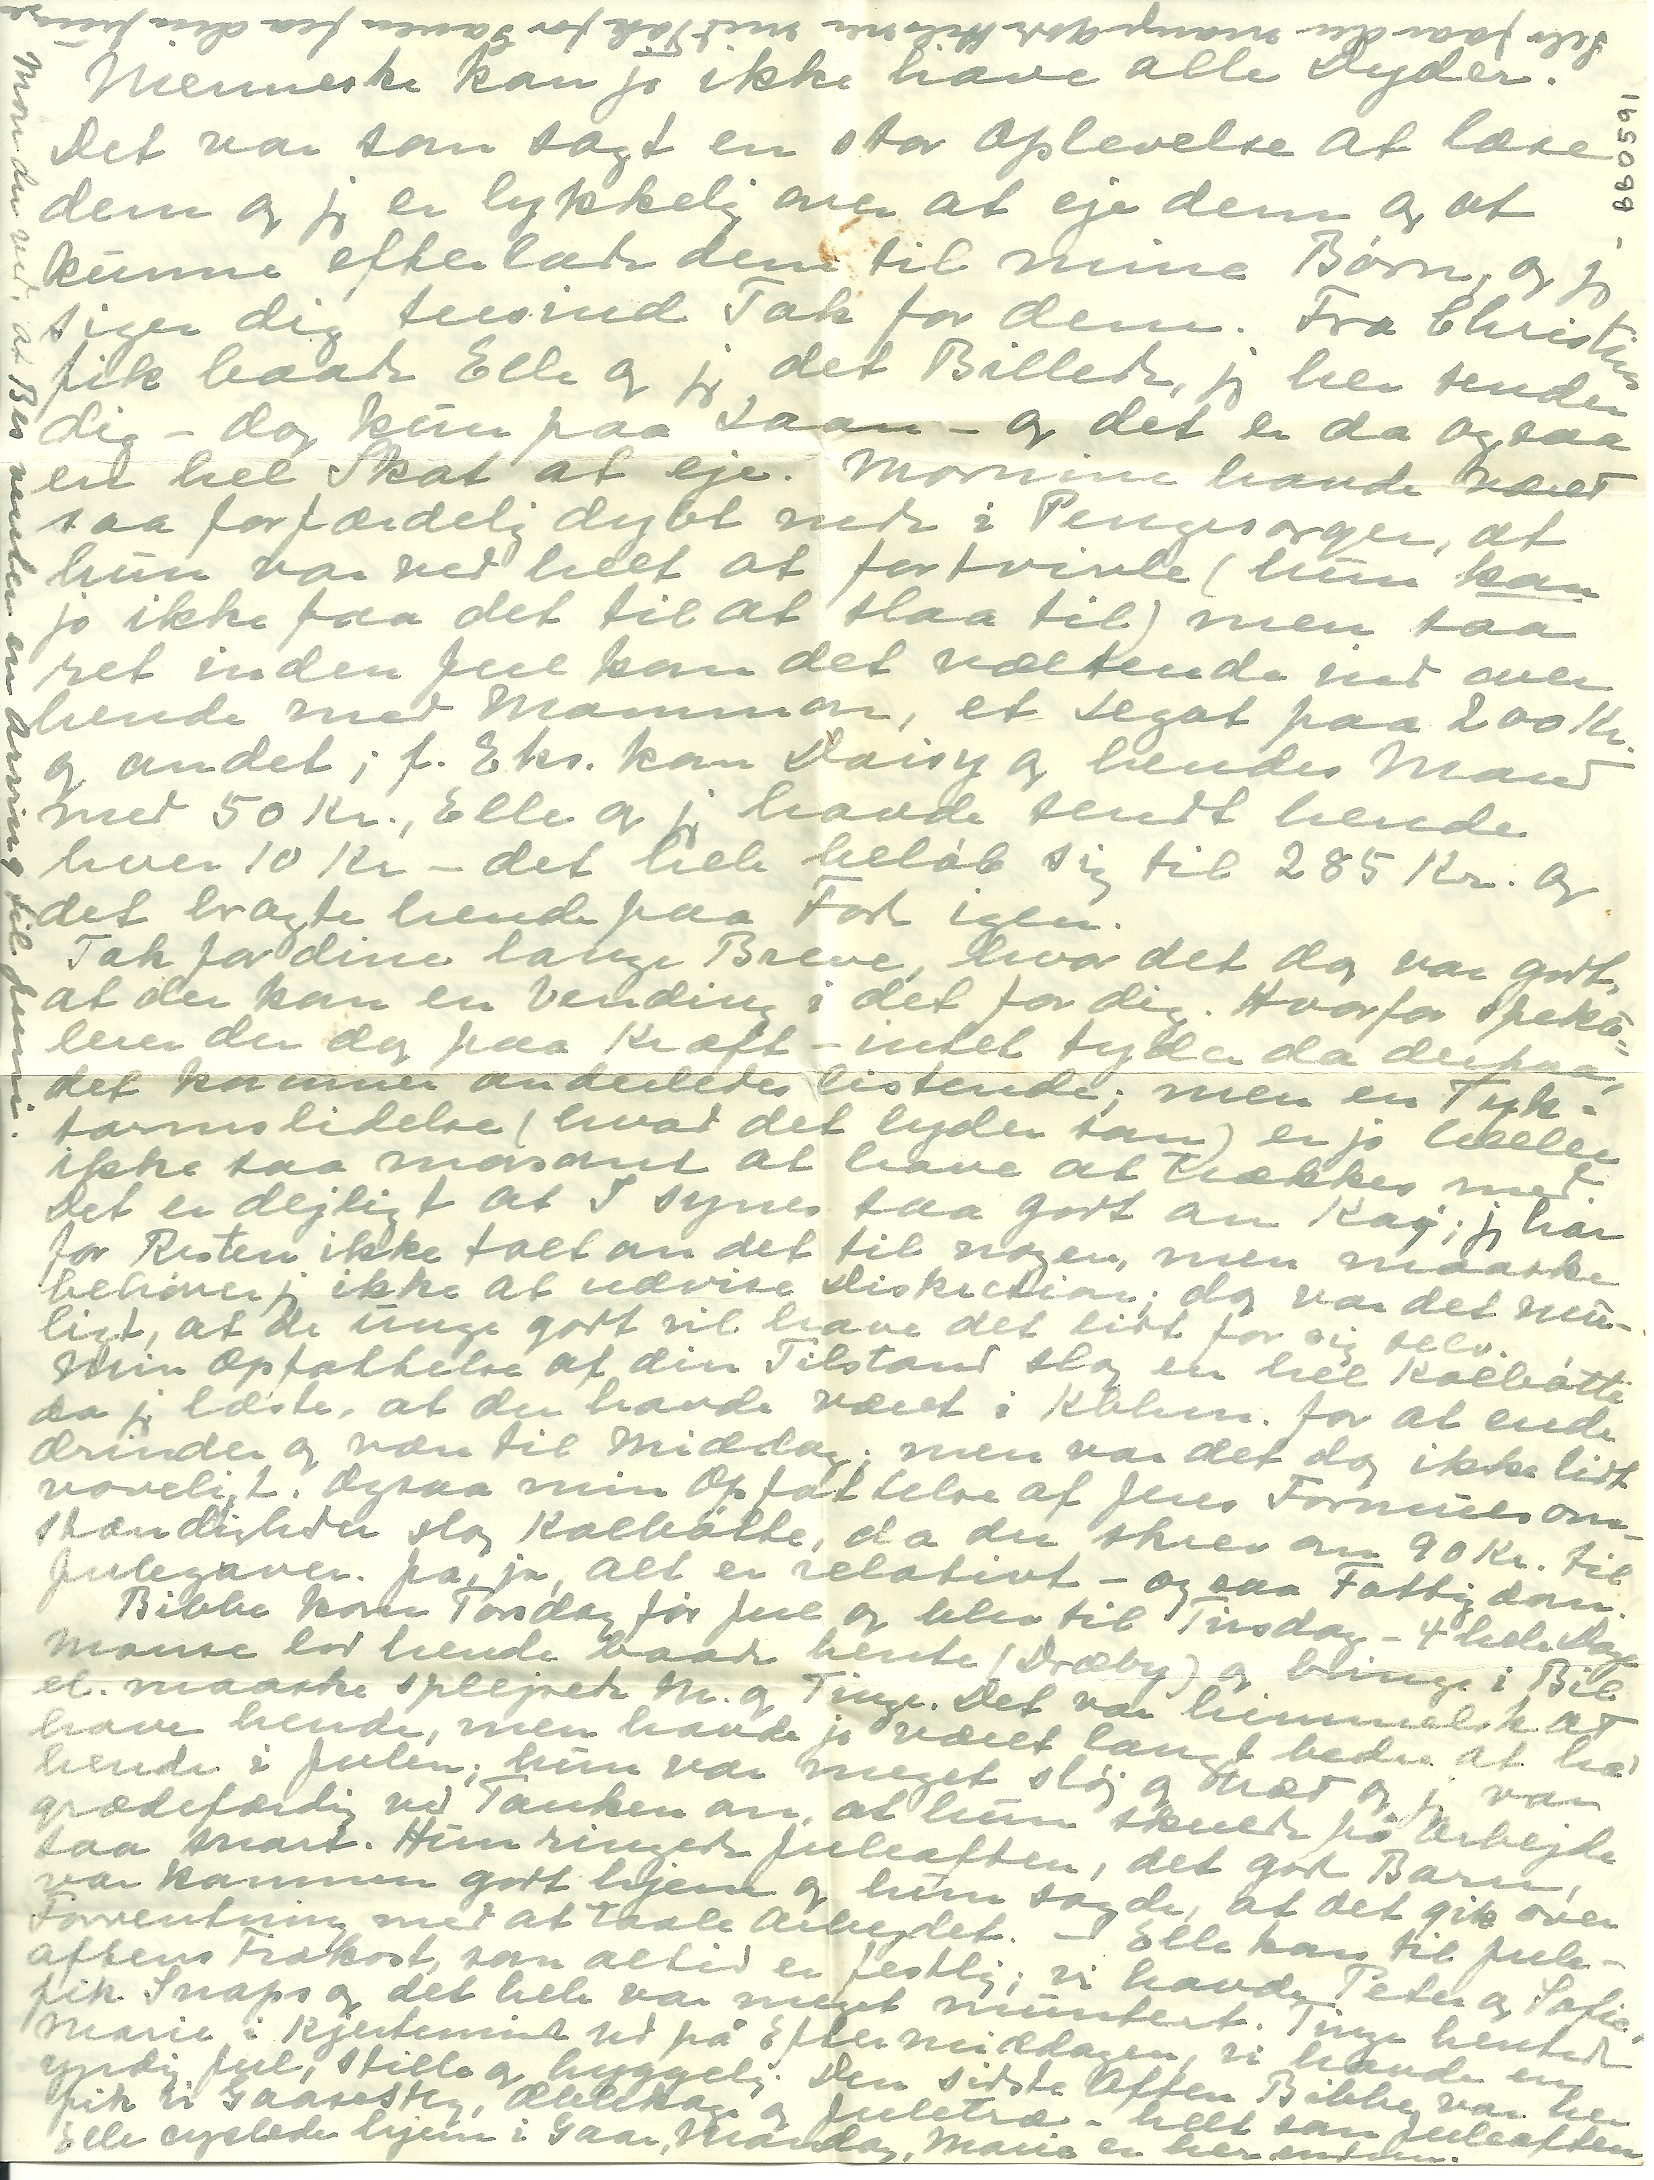 Selv faar du mange gode Hilsner med Tak for Gaven fra din Junge
Menneske kan jo ikke have alle Dyder.
Det var som sagt en stor Oplevelse at læse
dem og jeg er lykkelig over at eje dem og at
kunne efterlade dem til mine Børn, og jeg
siger dig tusind Tak for dem. Fra Christine
fik baade Elle og jeg det Billede, jeg her sender
dig – dog kun paa Laan – og det er da ogsaa
en hel Skat at eje. Mornine havde været
saa forfærdelig dybt nede i Pengesorger, at
hun var ved helt at fortvivle (hun kan
jo ikke faa det til at slaa til) men saa
ret inden Jul kom det væltende ind over
hende med Mammon, et Legat paa 200 Kr.
og andet; f. Eks. kom Daisy og hendes Mand
med 50 Kr., Elle og jeg havde sendt hende
hver 10 Kr – det hele beløb sig til 285 Kr. og
det bragte hende paa Fode igen.
Tak for dine lange Breve, hvor det dog var godt,
at der kom en Vending i det for dig. Hvorfor speku-
lerer du dog paa Kræft – intet tyder da derpaa,
det kommer anderledes listende; men en Tyk-
tarmslidelse (hvad det lyder som) er jo heller
ikke saa morsomt at have at trækkes med.
Det er dejligt at I synes saa godt om Kay; jeg har
for Resten ikke talt om det til nogen, men maaske
behøver jeg ikke at udvise Diskretion; dog var det mu-
ligt, at de unge godt vil have det lidt for sig selv.
Min Opfattelse af din Tilstand slog en hel Kolbøtte
da jeg læste, at du havde været i Kbhvn. for at ende
Ærinder og være til Middag; men var det dog ikke lidt
voveligt. Ogsaa min Opfattelse af Jeres Formuesom-
stændigheder slog Kolbøtte, da du skrev om 90 Kr. til
Julegaver. Ja, ja, alt er relativt – ogsaa Fattigdom.
Bibbe kom Torsdag før Jul og blev til Tirsdag – 4 hele Dage
Manse lod hende baade hente (Dræby) og bringe i Bil
el. maaske splejsede M. og Tinge. Det var himmelsk at
have hende, men havde jo været langt bedre at haft
hende i Julen; hun var meget sløj og træt og jeg var
grædefærdig ved Tanken om, at hun skulde på Arbejde
saa snart. Hun ringede Juleaften, det gode Barn,
var kommen godt hjem og hun sagde, at det gik over
Forventning med at taale Arbejdet. – Elle kom til Jule-
aftens Frokost, som altid er festlig; vi havde Peter og Sofie,
fik Snaps og det hele var meget muntert. Tinge hentede
Marie i Kjerteminde ud på Eftermiddagen, vi havde en
yndig Jul, stille og hyggelig. Den sidste Aften Bibbe var her
fik vi Gaasesteg, Æblekage og Juletræ – helt som Juleaften
Elle cyklede hjem i Gaar, Mandag, Marie er her endnu.
Mon du ved, at Bes venter en Arving til Juni.
BB0591